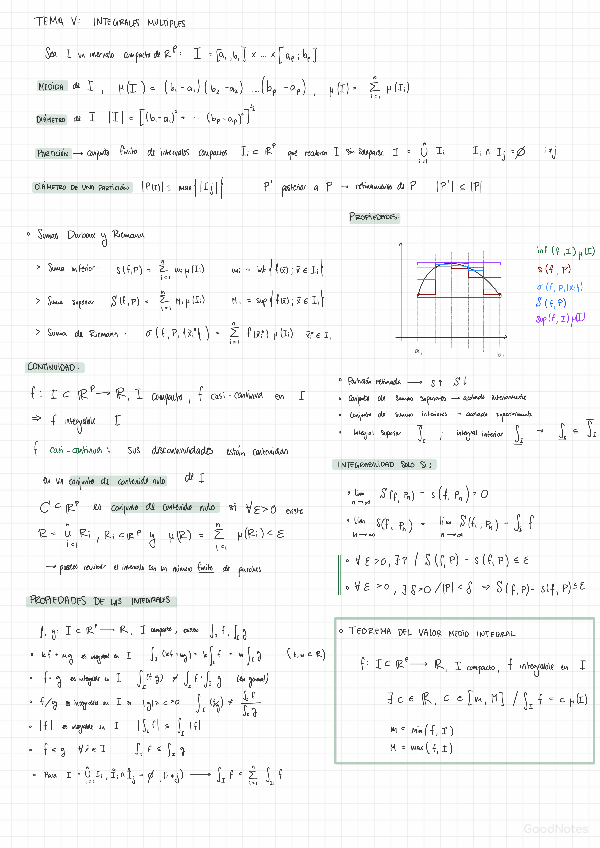 TEMA V: INTEGRALES MULTIPLES
Sea I un intervalo compacto de ℝᵖ: I = [a₁, b₁] × ... × [aₚ; bₚ]
MEDIDA de I, μ(I) = (b₁-a₁)(b₂-a₂) ...(bₚ-aₚ), μ(I) = Σᵢ₌₁ⁿ μ(Iᵢ)
DIÁMETRO de I |I| = [(b₁-a₁)² + ... (bₚ-aₚ)²]^½
PARTICIÓN → conjunto finito de intervalos compactos Iᵢ ⊂ ℝᵖ que recubren I sin solaparse I = ∪ᵢ₌₁ⁿ Iᵢ Iᵢ ∩ Iⱼ = ∅ i≠j
DIÁMETRO DE UNA PARTICIÓN |P(I)| = max{|Iⱼ|} P' posterior a P → refinamiento de P |P'| ≤ |P|
PROPIEDADES:
• Sumas Darboux y Riemann
> Suma inferior s(f,P) = Σᵢ₌₁ⁿ mᵢ μ(Iᵢ) mᵢ = inf{f(x̄); x̄ ∈ Iᵢ}
> Suma superior S(f,P) = Σᵢ₌₁ⁿ Mᵢ μ(Iᵢ) Mᵢ = sup{f(x̄); x̄ ∈ Iᵢ}
> Suma de Riemann: σ(f, P, {x̄ᵢ*}) = Σᵢ₌₁ⁿ f(x̄ᵢ*) μ(Iᵢ) x̄ᵢ* ∈ Iᵢ
inf(f, I) μ(I)
s(f, P)
σ(f, P, {xᵢ})
S(f, P)
sup(f, I) μ(I)
a₁ b₁
CONTINUIDAD:
f: I ⊂ ℝᵖ → ℝ, I compacto, f casi-continua en I
⇒ f integrable I
f casi-continua: sus discontinuidades están contenidas
en un conjunto de contenido nulo de I
C ⊂ ℝᵖ es conjunto de contenido nulo si ∀ε>0 existe
R = ∪ᵢ₌₁ⁿ Rᵢ, Rᵢ ⊂ ℝᵖ y μ(R) = Σᵢ₌₁ⁿ μ(Rᵢ) < ε
→ puedes recubrir el intervalo en un número finito de
• Partición refinada → s↑ S↓
• Conjunto de sumas superiores → acotado inferiormente
• Conjunto de sumas inferiores → acotado superiormente
• Integral superior ∫̄_I ; integral inferior ∫_I → ∫_I ≤ ∫̄_I
INTEGRABILIDAD SOLO SI:
• lim n→∞ S(f, Pₙ) - s(f, Pₙ) = 0
• lim n→∞ s(f, Pₙ) = lim n→∞ S(f, Pₙ) = ∫_I f
• ∀ε>0, ∃P / S(f, P) - s(f, P) ≤ ε
• ∀ε>0, ∃δ>0 / |P| < δ ⇒ S(f, P) - s(f, P) ≤ ε
PROPIEDADES DE LAS INTEGRALES
f, g: I ⊂ ℝᵖ → ℝ, I compacto, ∫_I f, ∫_I g
• kf + mg es integrable en I ∫_I (kf + mg) = k∫_I f + m∫_I g (k, m ∈ ℝ)
• f·g es integrable en I ∫_I (f·g) ≠ ∫_I f · ∫_I g (en general)
• f/g es integrable en I si |g| > c > 0 ∫_I (f/g) ≠ ∫_I f / ∫_I g
• |f| es integrable en I |∫_I f| ≤ ∫_I |f|
• f ≤ g ∀x̄ ∈ I ∫_I f ≤ ∫_I g
• Para I = ∪ᵢ₌₁ⁿ Iᵢ, Iᵢ ∩ Iⱼ = ∅, (i≠j) → ∫_I f = Σᵢ₌₁ⁿ ∫_Iᵢ f
• TEOREMA DEL VALOR MEDIO INTEGRAL
f: I ⊂ ℝᵖ → ℝ, I compacto, f integrable en I
∃c ∈ ℝ, c ∈ [m, M] / ∫_I f = c μ(I)
m = min(f, I)
M = max(f, I)
GoodNotes